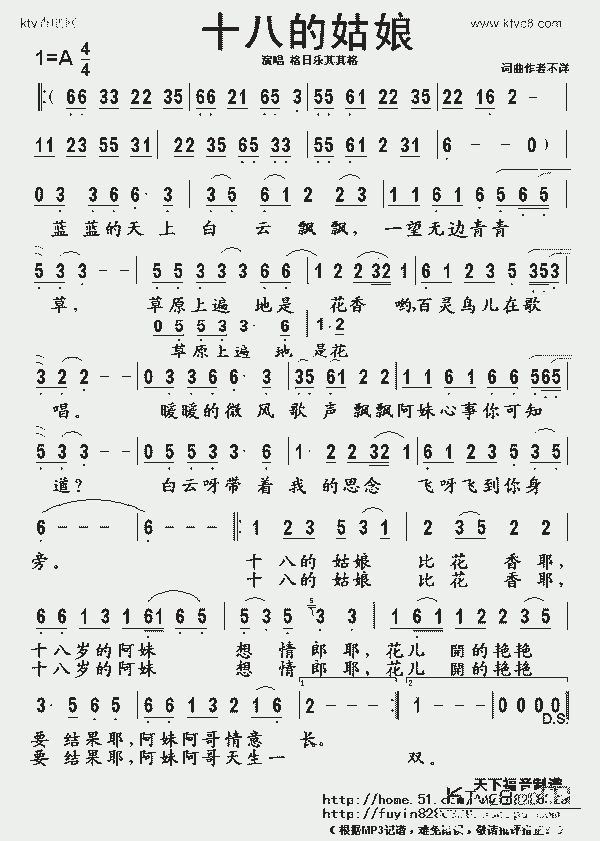 十八的姑娘
www.ktvc8.com
1=A 4/4
演唱 格日乐其其格
词曲作者不详
( 66 33 22 35 | 66 21 65 3 | 55 61 22 35 | 22 16 2 -
11 23 55 31 | 22 35 65 33 | 55 61 2 31 | 6 - - 0 )
0 3 3 6 6· 3 | 3 5 6 1 2 2 3 | 1 1 6 1 6 5 6 5
蓝 蓝的天 上 白 云 飘飘, 一望无边青青
5 3 3 - - | 5 5 3 3 3 6 6 | 1 2 2 32 1 | 6 1 2 3 5 353
草, 草原上遍 地是 花香 哟,百灵鸟儿在歌
0 5 5 3 3· 6 | 1·2
草原上遍 地 是花
3 2 2 - - | 0 3 3 6 6· 3 | 35 61 2 2 | 1 1 6 1 6 6 565
唱。 暖暖的微 风 歌 声 飘飘阿妹心事你可知
5 3 3 - - | 0 5 5 3 3· 6 | 1· 2 2 32 | 6 1 2 3 5 3 5
道? 白云呀带 着 我 的思念 飞呀飞到你身
6 - - - | 6 - - - 1 2 3 5 3 1 | 2 2 3 5 3
旁。 十 八的 姑娘 比 花 香 耶,
十 八的 姑娘 比 花 香 耶,
6 6 1 3 1 61 6 5 | 5 3 5 3 3 | 1 6 1 1 2 3 5
十八岁的阿妹 想 情 郎 耶, 花儿 開的艳艳
十八岁的阿妹 想 情 郎 耶, 花儿 開的艳艳
3· 5 6 5 | 6 6 1 3 2 1 6 | 2 - - | 1 - - | 0 0 0 0
D.S.
要 结果耶,阿妹阿哥情意 长。
要 结果耶,阿妹阿哥天生一 双。
天下福音制谱
(根据MP3记谱,难免错误,敬请批评指正